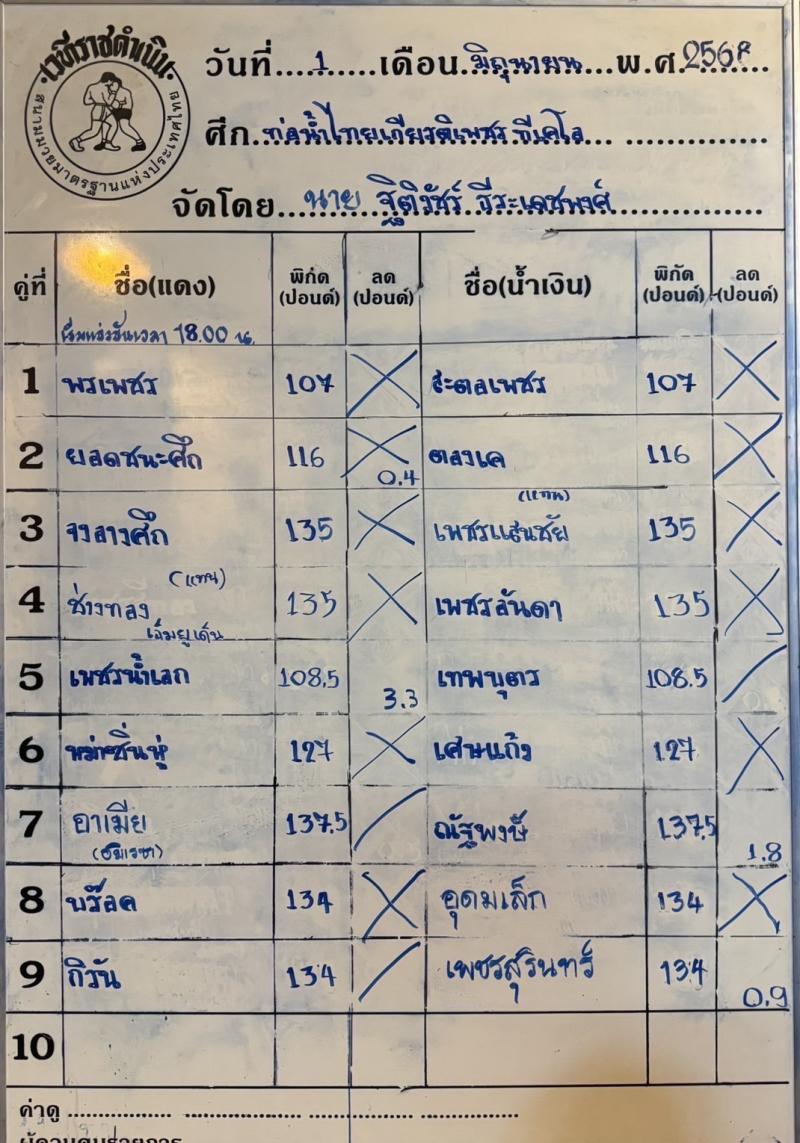 เวทีราชดำเนิน
สนามมวยมาตรฐานแห่งประเทศไทย
วันที่.....1.....เดือน.มิถุนายน...พ.ศ.2568
ศึก.ท่อน้ำไทยเกียรติเพชร ทีเคโอ
จัดโดย....นาย ฐิติวัชร์ ธีระเดชพงศ์
คู่ที่ ชื่อ(แดง) พิกัด (ปอนด์) ลด (ปอนด์) ชื่อ(น้ำเงิน) พิกัด (ปอนด์) ลด (ปอนด์)
เริ่มแข่งขันเวลา 18.00 น.
1 พรเพชร 107 107
2 ยอดชนะศึก 116 0.4 ตองเค 116
3 จงอางศึก 135 เพชรแสนชัย (แทน) 135
4 ช่างทอง (แทน) 135 เพชรลันดา 135
5 เพชรน้ำเอก เอ็มยูเด็น 108.5 3.3 เทพบุตร 108.5
6 หม่าซิ่นหู่ 127 127
7 อาเมีย 137.5 ณัฐพงษ์ 137.5 1.8
8 บร๊อค 134 อุดมเล็ก 134
9 กิรัน 134 เพชรสุรินทร์ 134 0.9
10
ค่าดู
ผู้ควบคุมรายการ